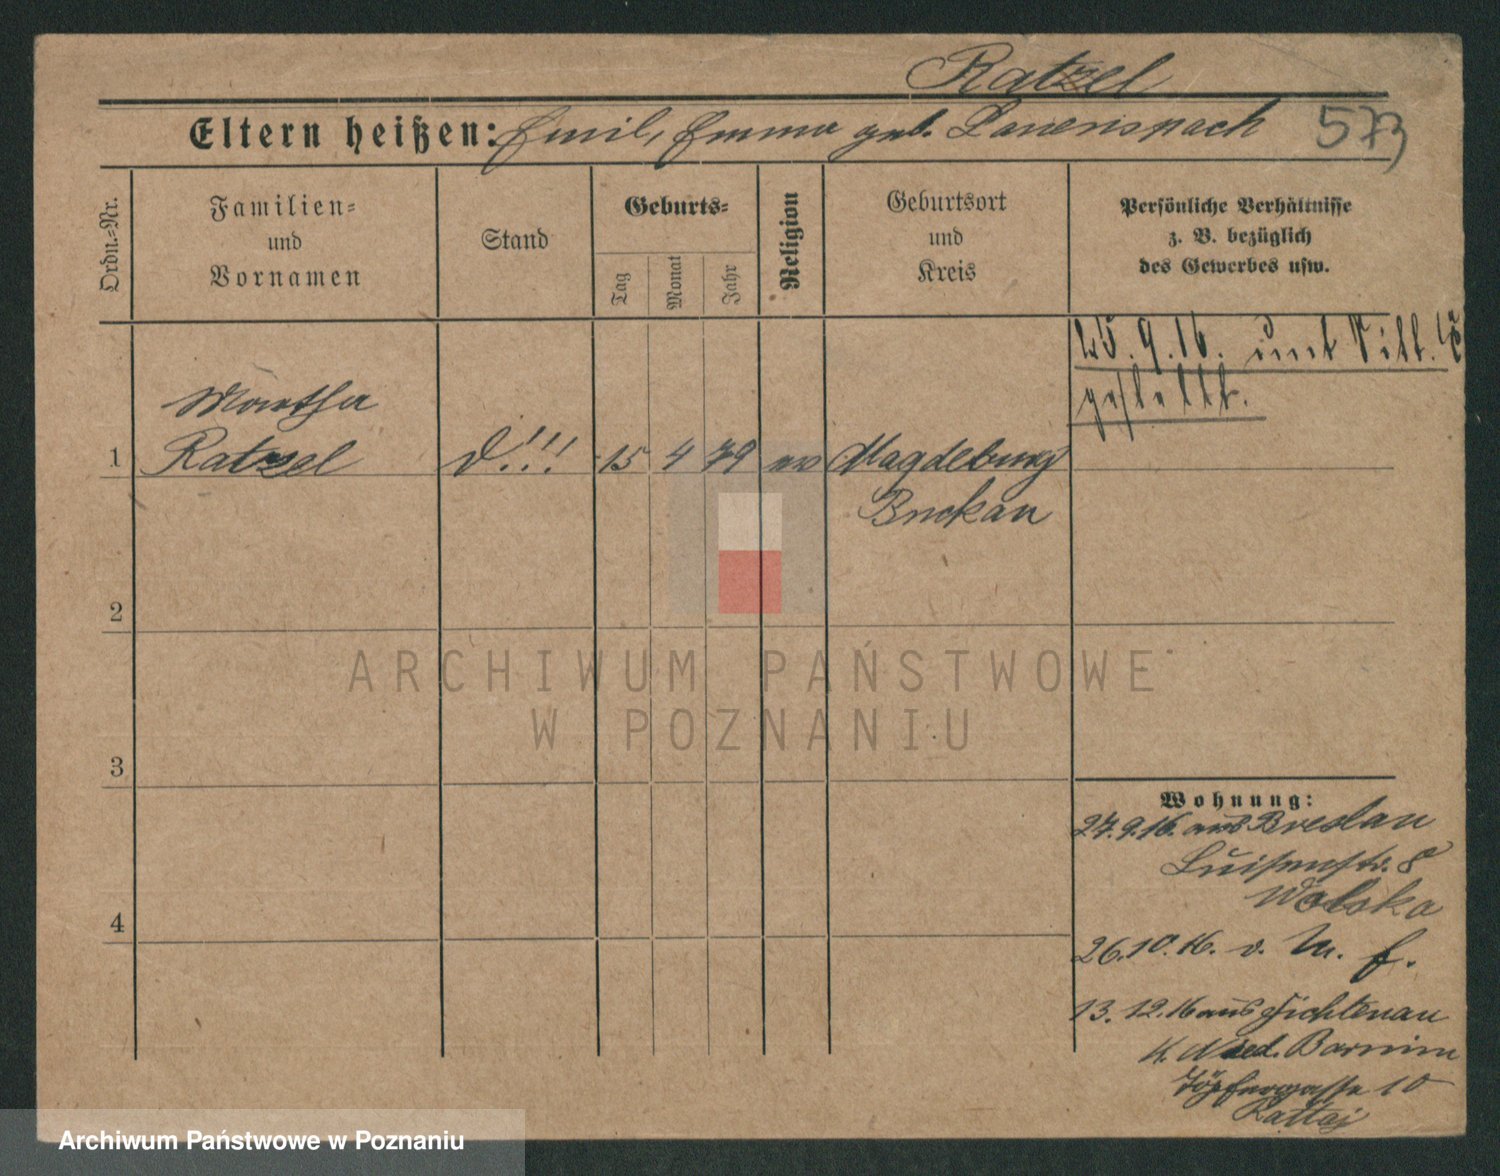 Ratzel
Eltern heißen: Emil, Emma geb. Lauenspach
573
Ordn.-Nr.
Familien-
und
Vornamen
Stand
Geburts-
Tag
Monat
Jahr
Religion
Geburtsort
und
Kreis
Persönliche Verhältnisse
z. B. bezüglich
des Gewerbes usw.
25.9.16.
gestellt.
Martha
1 Ratzel d!!! 15 4 79 ev Magdeburg
Buckau
2
3
4
ARCHIWUM PAŃSTWOWE
W POZNANIU
Wohnung:
27.9.16. aus Breslau
Luisenstr. 8
Wolska
26.10.16. v.
13.12.16 aus Fichtenau
K. Nied. Barnim
Töpfergasse 10
Rattaj
Archiwum Państwowe w Poznaniu